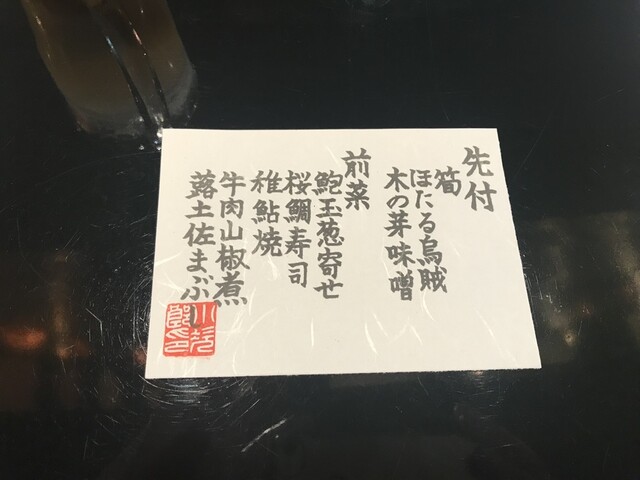 先付
筍
ほたる烏賊
木の芽味噌
前菜
鮑玉葱寄せ
桜鯛寿司
稚鮎焼
牛肉山椒煮
蕗土佐まぶし